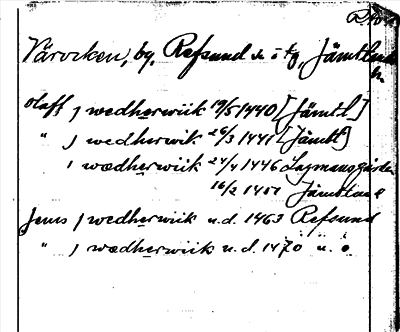 Vårvcken, by, Refsund s:n o tg, Jämtlands
ln
Olaff j wedherwiik 19/5 1440 [Jämtl]
" j wedherwik 26/3 1441 [Jämtl]
i wædherwiik 24/4 1446 Lagmansgården
16/2 1451 Jämtland
Jens j wedherwiik u.d. 1463 Refsund
" j wædherwiik u.d. 1470 u. o